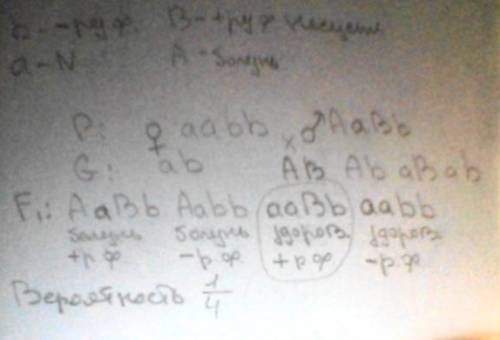 b - -ру ф. B - +ру ф
a - N A - болезнь
P: ♀ aabb x ♂ AaBb
G: ab AB Ab aB ab
F₁: AaBb Aabb aaBb aabb
болезнь болезнь здоров здоров
+р ф -р. ф +р ф -р. ф
Вероятность 1/4